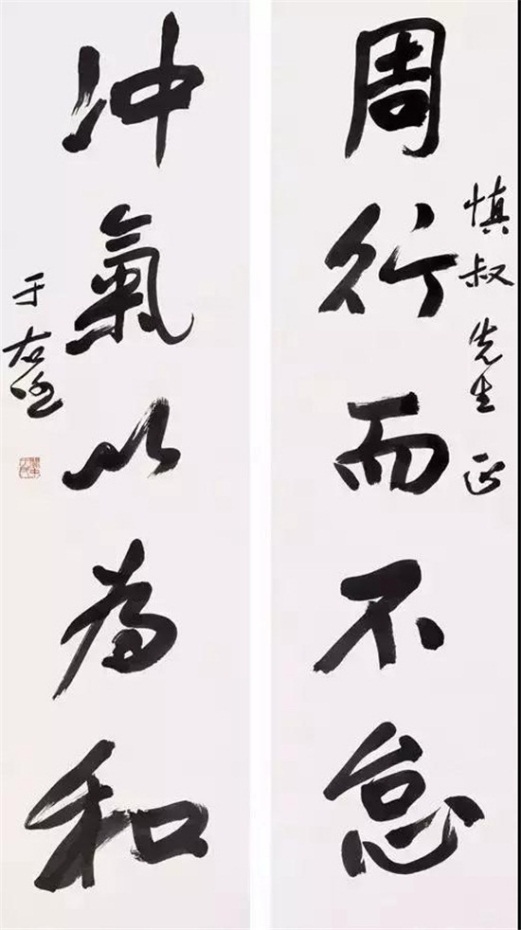 周行而不怠
慎叔先生正
沖氣以為和
于右任